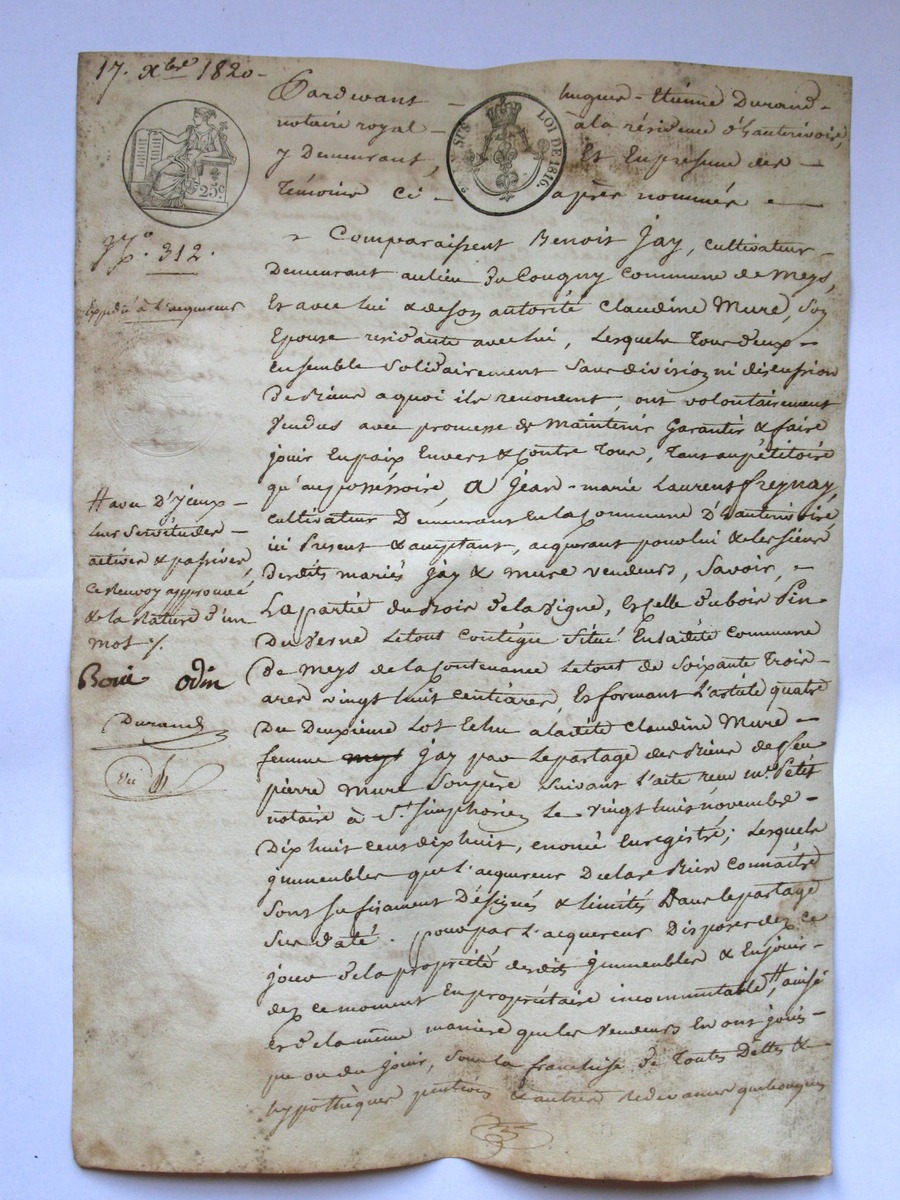 17. Xbre 1820
Pardevant hugues-Etienne Durand
notaire royal à la résidence d'hauterivoire,
y Demeurant, Et En presence des
Témoins Ci après nommés
25c
SUS LOI DE 1816.
No. 312.
Expedié à l'acquereur
Comparaissent Benoit Jay, cultivateur
Demeurant au lieu Du Cougny Commune de Meys,
Et avec lui & de son autorité Claudine Mure, Son
Epouse residante avec lui, Lesquels Tous deux
Ensemble Solidairement Sans division ni discussion
De biens a quoi ils renoncent, ont volontairement
Vendus avec promesse de Maintenir Garantir & faire
jouir En paix Envers & Contre Tous, Tans au pétitoire
qu'au possessoire, a Jean-marie Laurent freynay
Cultivateur Demeurant En la Commune D'hauterivoire
ici Present & acceptant, acquerant pour lui & les siens
Desdits mariés Jay & Mure vendeurs, Savoir,
La partie du Bois de la Vigne, Et celle du bois Pin
Du Verne Le tout Contigu Situé En sadite Commune
De Meys de la Contenance Le tout de Soixante Trois
ares vingt huit Centiares, Et formant L'article quatre
Du Deuxieme Lot Echu a ladite Claudine Mure
femme Jay par le partage des biens de feu
pierre Mure Son père Suivant l'acte reçu me Petit
notaire à St Simphorien Le vingt huit novembre
Dix huit Cent dix huit, enoncé Enregistré; Lesquels
immeubles que L'acquereur Declare Bien Connaitre
Sont suffisament Désignés & limités Dans le partage
Sus daté. pour par L'acquereur Disposer dez ce
jour de la propriété desdits immeubles & En jouir
dez ce moment En propriétaire incommutable, # ainsi
et de la même manière que les Vendeurs En ont jouis
pu ou du jouir, Sous la franchise de Toutes Dettes &
hypothèques pentions & autres Redevances quelconques
# avec D'iceux
Leurs Servitudes
actives & passives,
ce Renvoy approuvé
& de la Nature d'un
mot ./.
Boui Odin
Durand